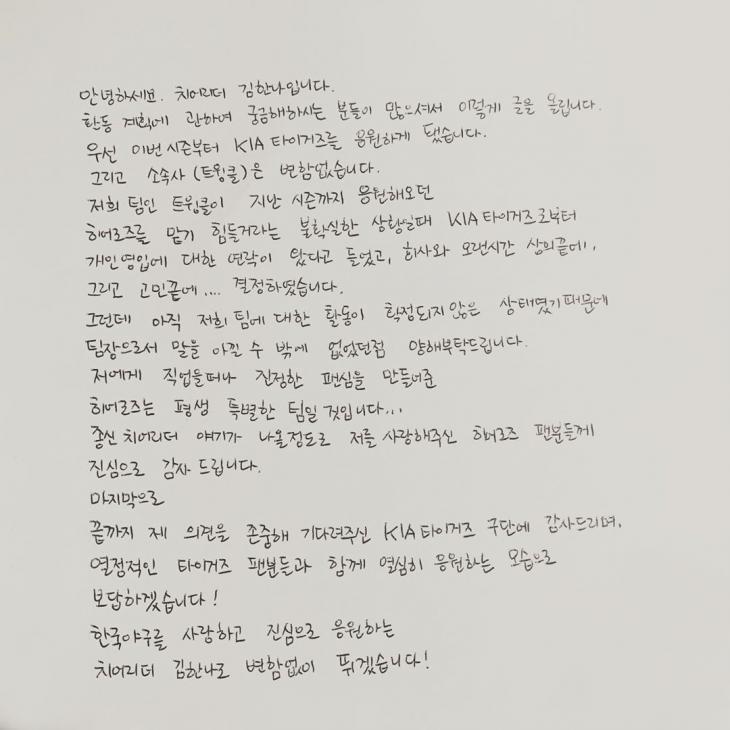 안녕하세요. 치어리더 김한나입니다.
활동 계획에 관하여 궁금해하시는 분들이 많으셔서 이렇게 글을 올립니다.
우선 이번 시즌부터 KIA 타이거즈를 응원하게 됐습니다.
그리고 소속사 (트윙클)은 변함없습니다.
저희 팀인 트윙클이 지난 시즌까지 응원해오던
히어로즈를 맡기 힘들거라는 불확실한 상황일때 KIA 타이거즈로부터
개인영입에 대한 연락이 왔다고 들었고, 회사와 오랜시간 상의끝에..
그리고 고민끝에.... 결정하였습니다.
그런데 아직 저희 팀에 대한 활동이 확정되지 않은 상태였기 때문에
팀장으로서 말을 아낄 수 밖에 없었던점 양해부탁드립니다.
저에게 직업을 떠나 진정한 팬심을 만들어준
히어로즈는 평생 특별한 팀일 것입니다...
종신 치어리더 얘기가 나올정도로 저를 사랑해주신 히어로즈 팬분들께
진심으로 감사 드립니다.
마지막으로
끝까지 제 의견을 존중해 기다려주신 KIA 타이거즈 구단에 감사드리며,
열정적인 타이거즈 팬분들과 함께 열심히 응원하는 모습으로
보답하겠습니다!
한국야구를 사랑하고 진심으로 응원하는
치어리더 김한나로 변함없이 뛰겠습니다!